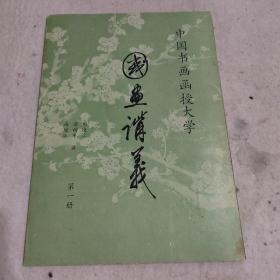 中国书画函授大学
国画讲义
第一册